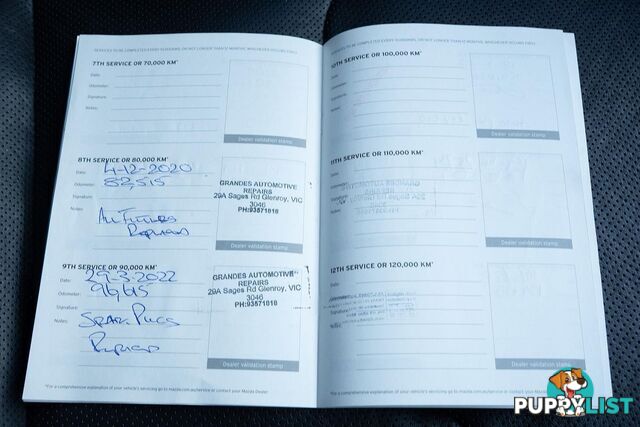 SERVICES TO BE COMPLETED EVERY 10,000KMS, OR NOT LONGER THAN 12 MONTHS, WHICHEVER OCCURS FIRST.
7TH SERVICE OR 70,000 KM*
Date:
Odometer:
Signature:
Notes:
Dealer validation stamp
8TH SERVICE OR 80,000 KM*
Date: 4-12-2020
Odometer: 82,515
Signature:
Notes:
GRANDES AUTOMOTIVE
REPAIRS
29A Sages Rd Glenroy, VIC
3046
PH:93571818
Dealer validation stamp
9TH SERVICE OR 90,000 KM*
Date: 29-3-2022
Odometer:
Signature:
Notes: SPARK PLUGS
GRANDES AUTOMOTIVE
REPAIRS
29A Sages Rd Glenroy, VIC
3046
PH:93571818
Dealer validation stamp
*For a comprehensive explanation of your vehicle's servicing go to mazda.com.au/service or contact your Mazda Dealer
SERVICES TO BE COMPLETED EVERY 10,000KMS, OR NOT LONGER THAN 12 MONTHS, WHICHEVER OCCURS FIRST.
10TH SERVICE OR 100,000 KM*
Date:
Odometer:
Signature:
Notes:
Dealer validation stamp
11TH SERVICE OR 110,000 KM*
Date:
Odometer:
Signature:
Notes:
Dealer validation stamp
12TH SERVICE OR 120,000 KM*
Date:
Odometer:
Signature:
Notes:
Dealer validation stamp
*For a comprehensive explanation of your vehicle's servicing go to mazda.com.au/service or contact your Mazda Dealer
PUPPYLIST